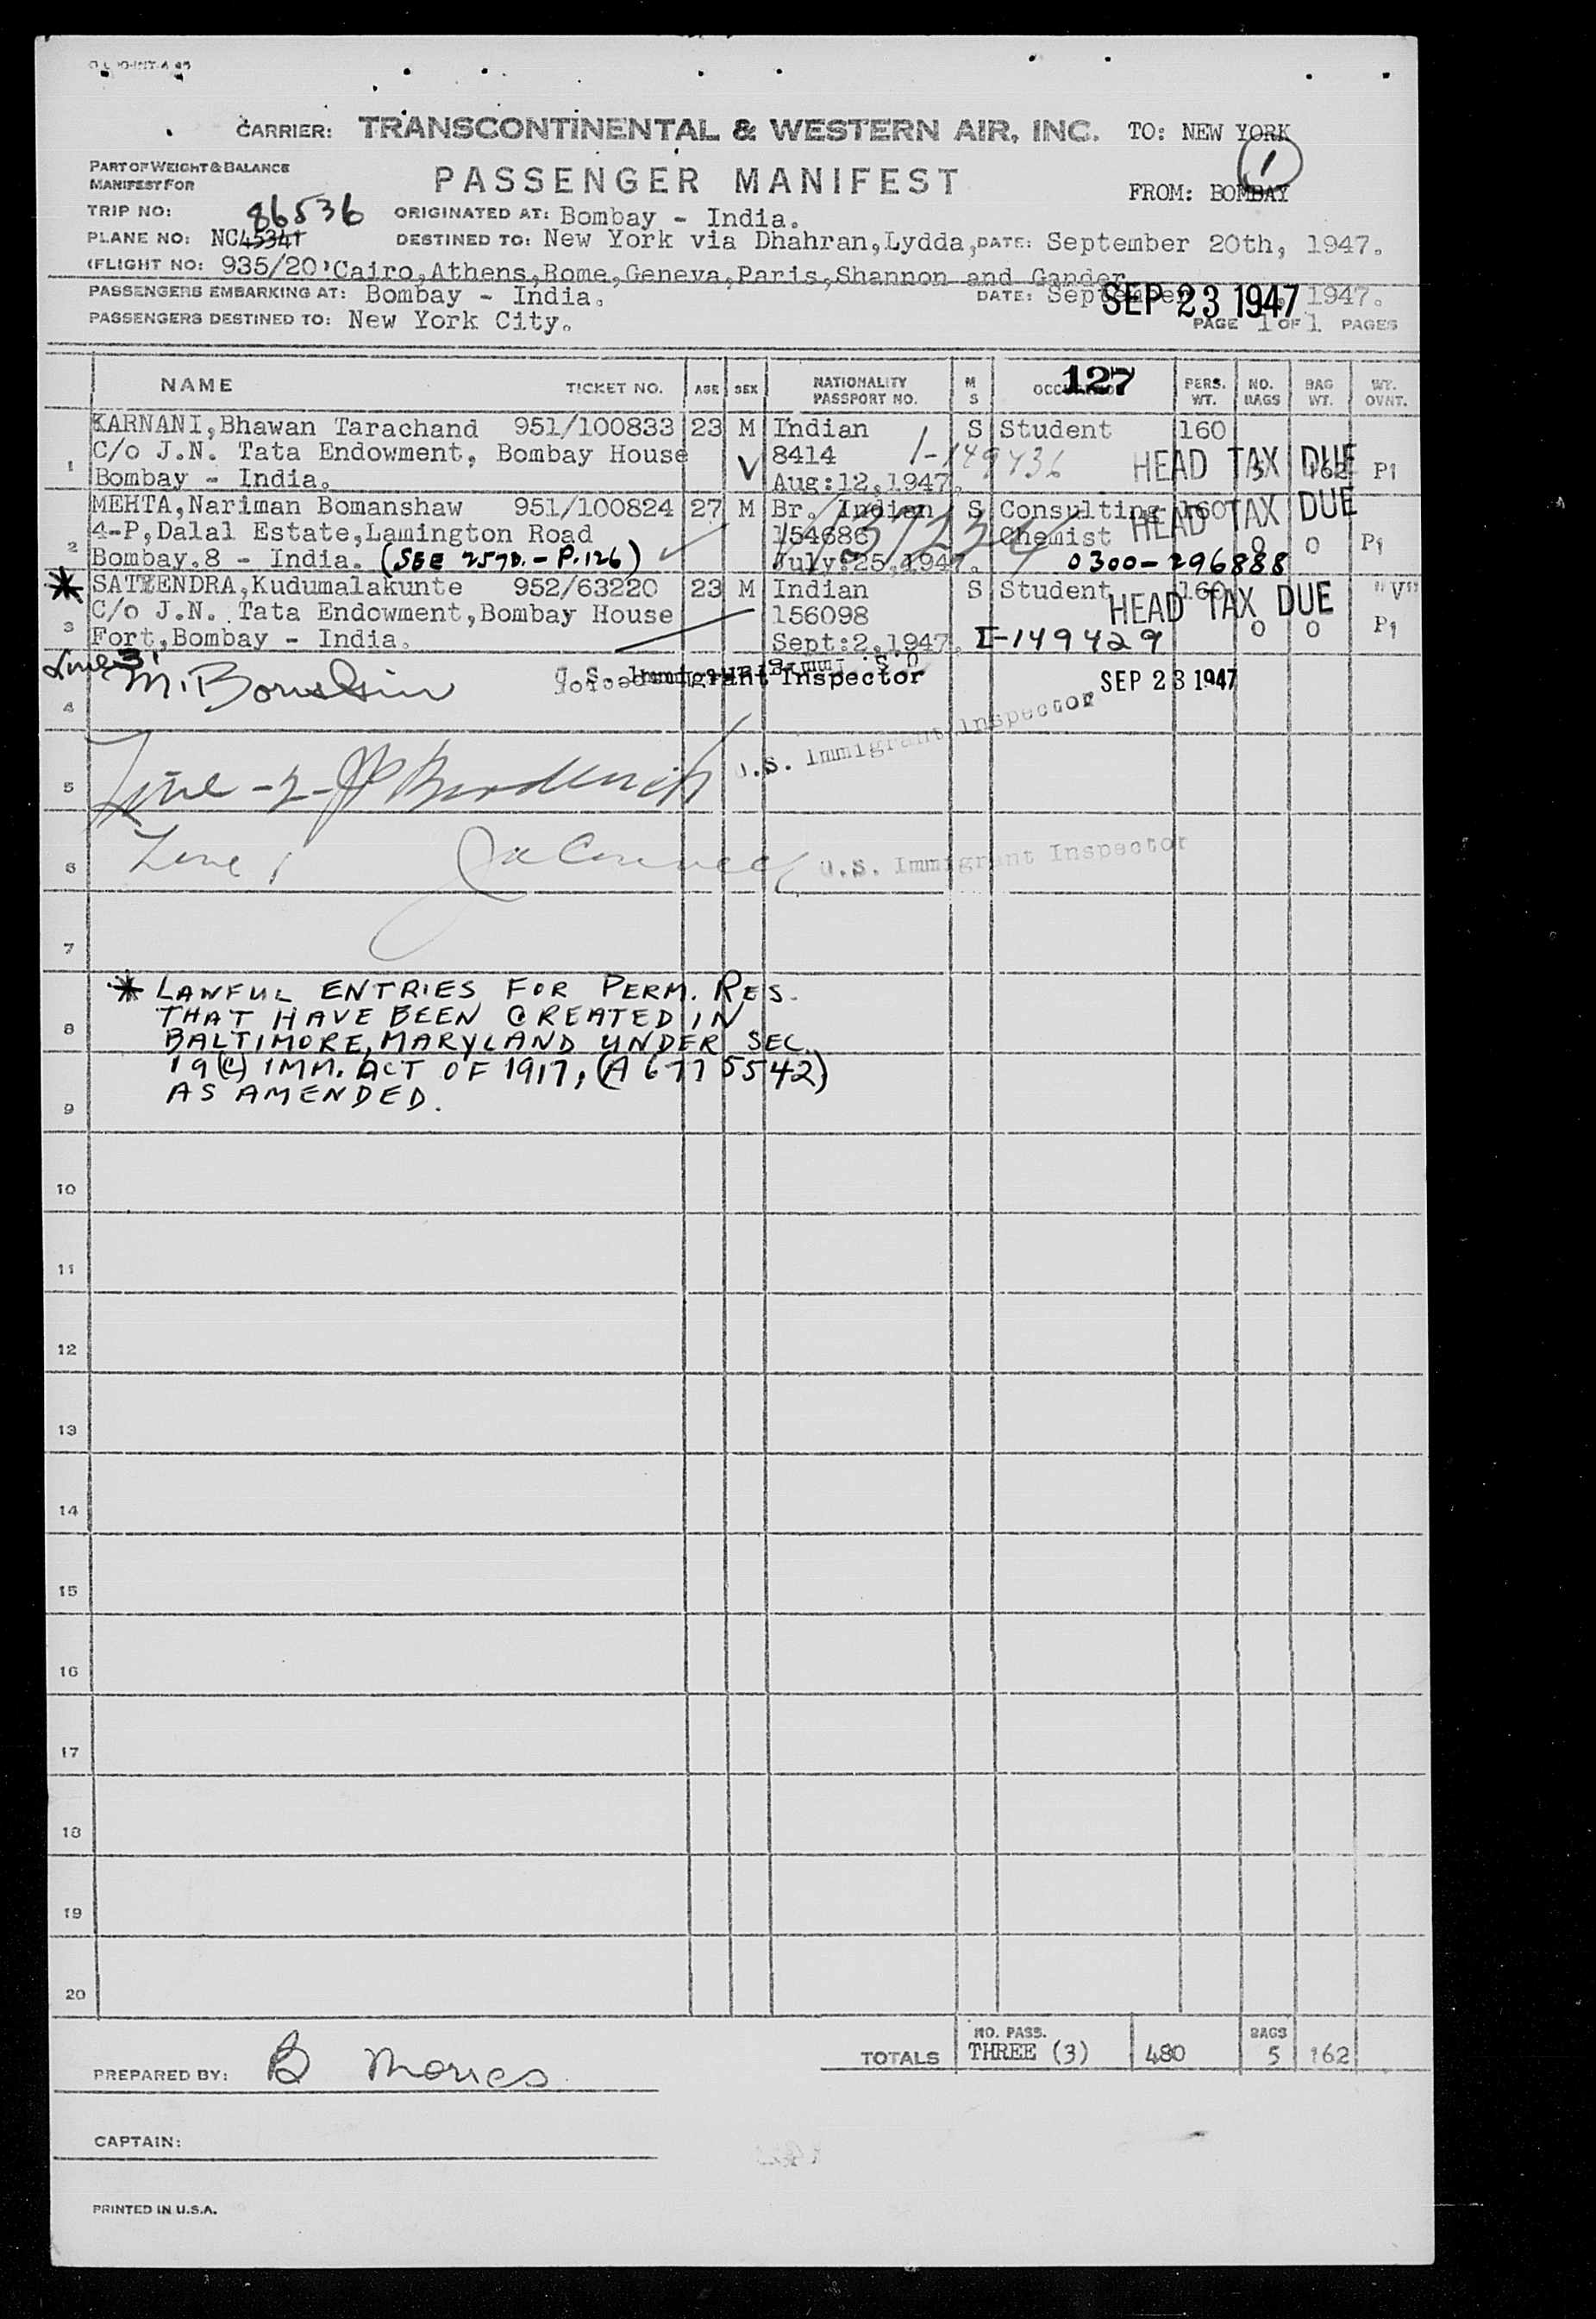 CARRIER: TRANSCONTINENTAL & WESTERN AIR, INC. TO: NEW YORK
1
PART OF WEIGHT & BALANCE
MANIFEST FOR
PASSENGER MANIFEST
FROM: BOMBAY
TRIP NO: 86536 ORIGINATED AT: Bombay - India.
PLANE NO: NC45341 DESTINED TO: New York via Dhahran,Lydda, DATE: September 20th, 1947.
FLIGHT NO: 935/20 Cairo,Athens,Rome,Geneva,Paris,Shannon and Gander
PASSENGERS EMBARKING AT: Bombay - India. DATE: September 1947.
SEP 23 1947
PASSENGERS DESTINED TO: New York City. PAGE 1 OF 1 PAGES
127
NAME TICKET NO. AGE SEX NATIONALITY PASSPORT NO. M S PERS. WT. NO. BAGS BAG WT. WT. OVNT.
KARNANI,Bhawan Tarachand 951/100833 23 M Indian S Student 160
C/o J.N. Tata Endowment, Bombay House 8414 1-149436 HEAD TAX DUE
1 Bombay - India. V Aug:12,1947. 5 162 P1
MEHTA,Nariman Bomanshaw 951/100824 27 M Br. Indian S Consulting 160 HEAD TAX DUE
4-P,Dalal Estate,Lamington Road 154686 Chemist 0 0 P1
2 Bombay.8 - India. (SEE 257D.-P.126) July:25,1947. 0300-296888
* SATYENDRA,Kudumalakunte 952/63220 23 M Indian S Student 160 "V"
C/o J.N. Tata Endowment,Bombay House 156098 HEAD TAX DUE
3 Fort,Bombay - India. Sept:2,1947. I-149429 0 0 P1
Line 3
M. Bornstein U.S. Immigrant Inspector SEP 23 1947
4
U.S. Immigrant Inspector
5 Line - 2 -
6 Line 1 U.S. Immigrant Inspector
7
* LAWFUL ENTRIES FOR PERM. RES.
THAT HAVE BEEN CREATED IN
8 BALTIMORE, MARYLAND UNDER SEC.
19(C) IMM. ACT OF 1917, (A 6775542)
9 AS AMENDED.
10
11
12
13
14
15
16
17
18
19
20
NO. PASS. BAGS
TOTALS THREE (3) 480 5 162
PREPARED BY: B
CAPTAIN:
PRINTED IN U.S.A.